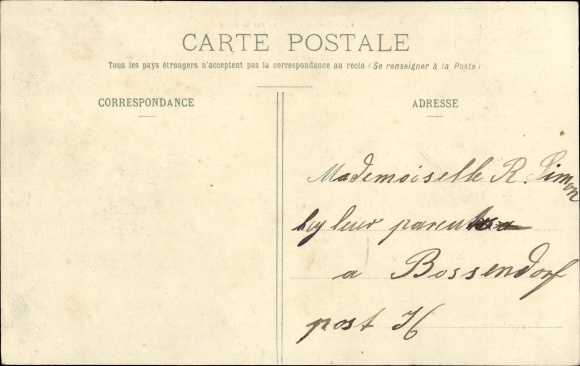 CARTE POSTALE
Tous les pays étrangers n'acceptent pas la correspondance au recto (Se renseigner à la Poste)
CORRESPONDANCE
ADRESSE
Mademoiselle R. Simon
leur
a Bossendorf
post H